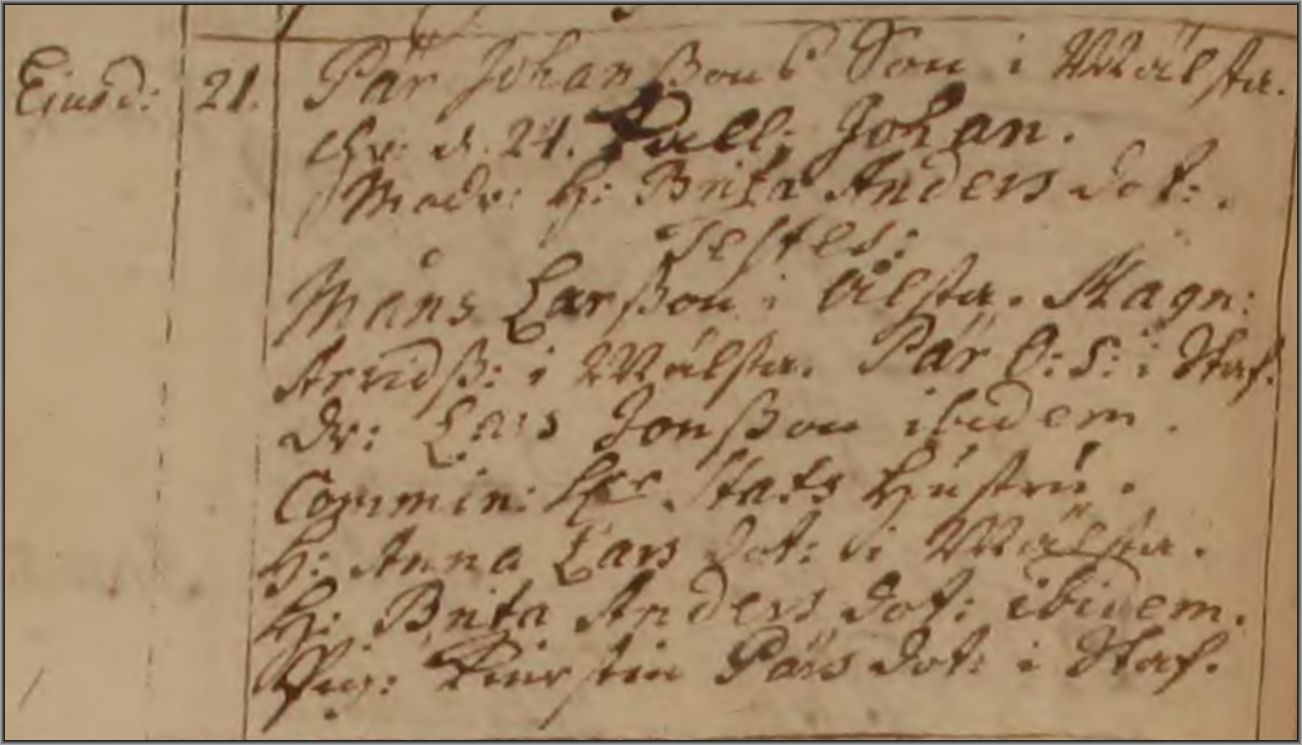 Eiusd: 21. Pär Johanßons Son i Wålsta.
Chr: d. 24. Kall: Johan.
Modr: H: Brita Anders dot:.
Testes:
Måns Larßon i Ålsta. Magn:
Arvidß: i Wålsta. Pär O: S: i Staf.
dr: Lars Jonßon ibidem.
Commin: Stats Hustru.
H: Anna Lars dot: i Wålsta.
H: Brita Anders dot: ibidem.
Pig: Kierstin Pärs dot: i Staf.